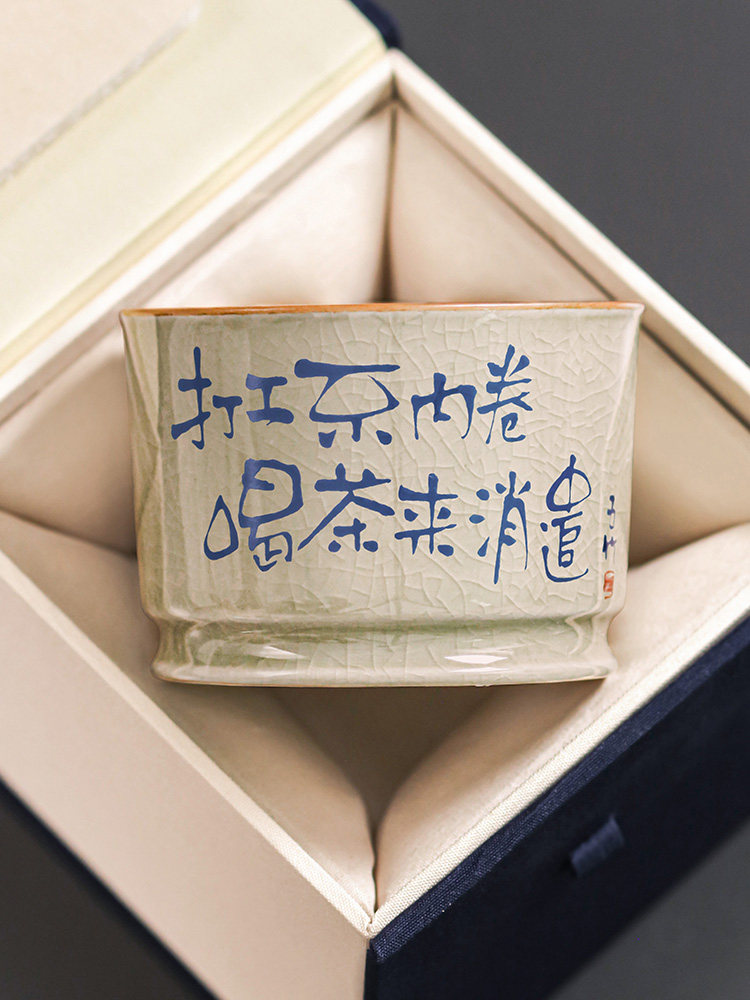 打工不内卷
喝茶来消遣
子竹